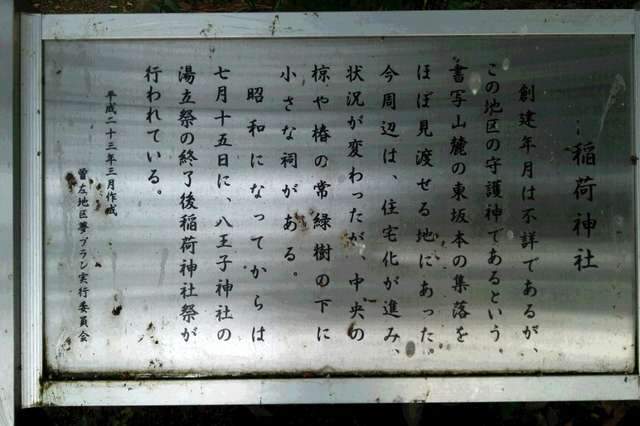 稲荷神社
創建年月は不詳であるが、
この地区の守護神であるという。
書写山麓の東坂本の集落を
ほぼ見渡せる地にあった。
今周辺は、住宅化が進み、
状況が変わったが、中央の
椋や椿の常緑樹の下に
小さな祠がある。
昭和になってからは
七月十五日に、八王子神社の
湯立祭の終了後稲荷神社祭が
行われている。
平成二十三年三月作成
曽左地区夢プラン実行委員会